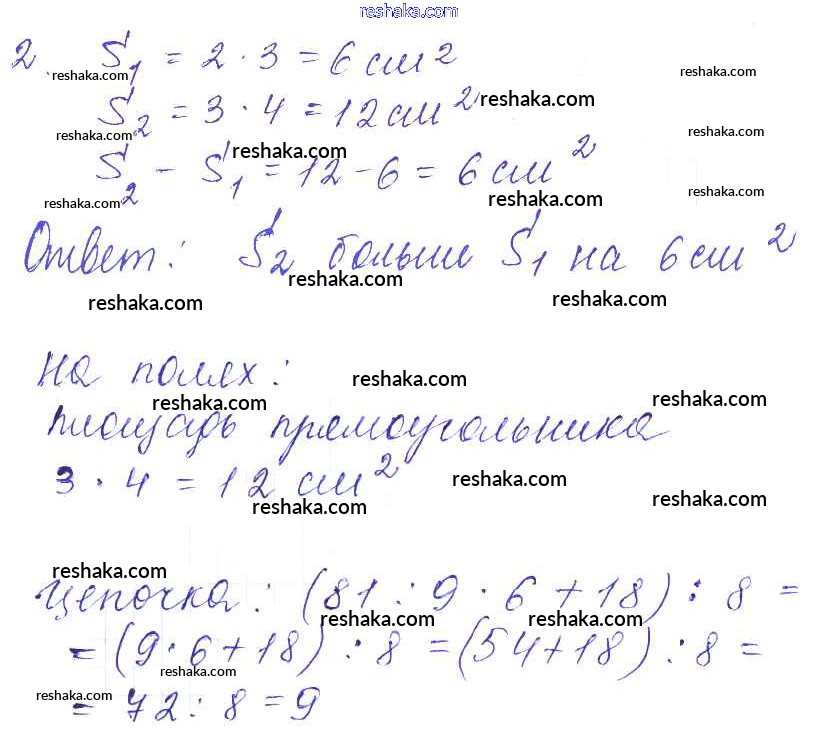 reshaka.com
2. S₁ = 2 · 3 = 6 см²
reshaka.com reshaka.com
S₂ = 3 · 4 = 12 см²
reshaka.com reshaka.com reshaka.com
S₂ - S₁ = 12 - 6 = 6 см²
reshaka.com reshaka.com reshaka.com reshaka.com
Ответ: S₂ больше S₁ на 6 см²
reshaka.com reshaka.com reshaka.com
На полях:
reshaka.com reshaka.com reshaka.com
площадь прямоугольника
3 · 4 = 12 см²
reshaka.com reshaka.com reshaka.com
reshaka.com
Цепочка: (81 : 9 · 6 + 18) : 8 =
reshaka.com reshaka.com
= (9·6+18) : 8 = (54+18) : 8 =
reshaka.com reshaka.com
= 72 : 8 = 9